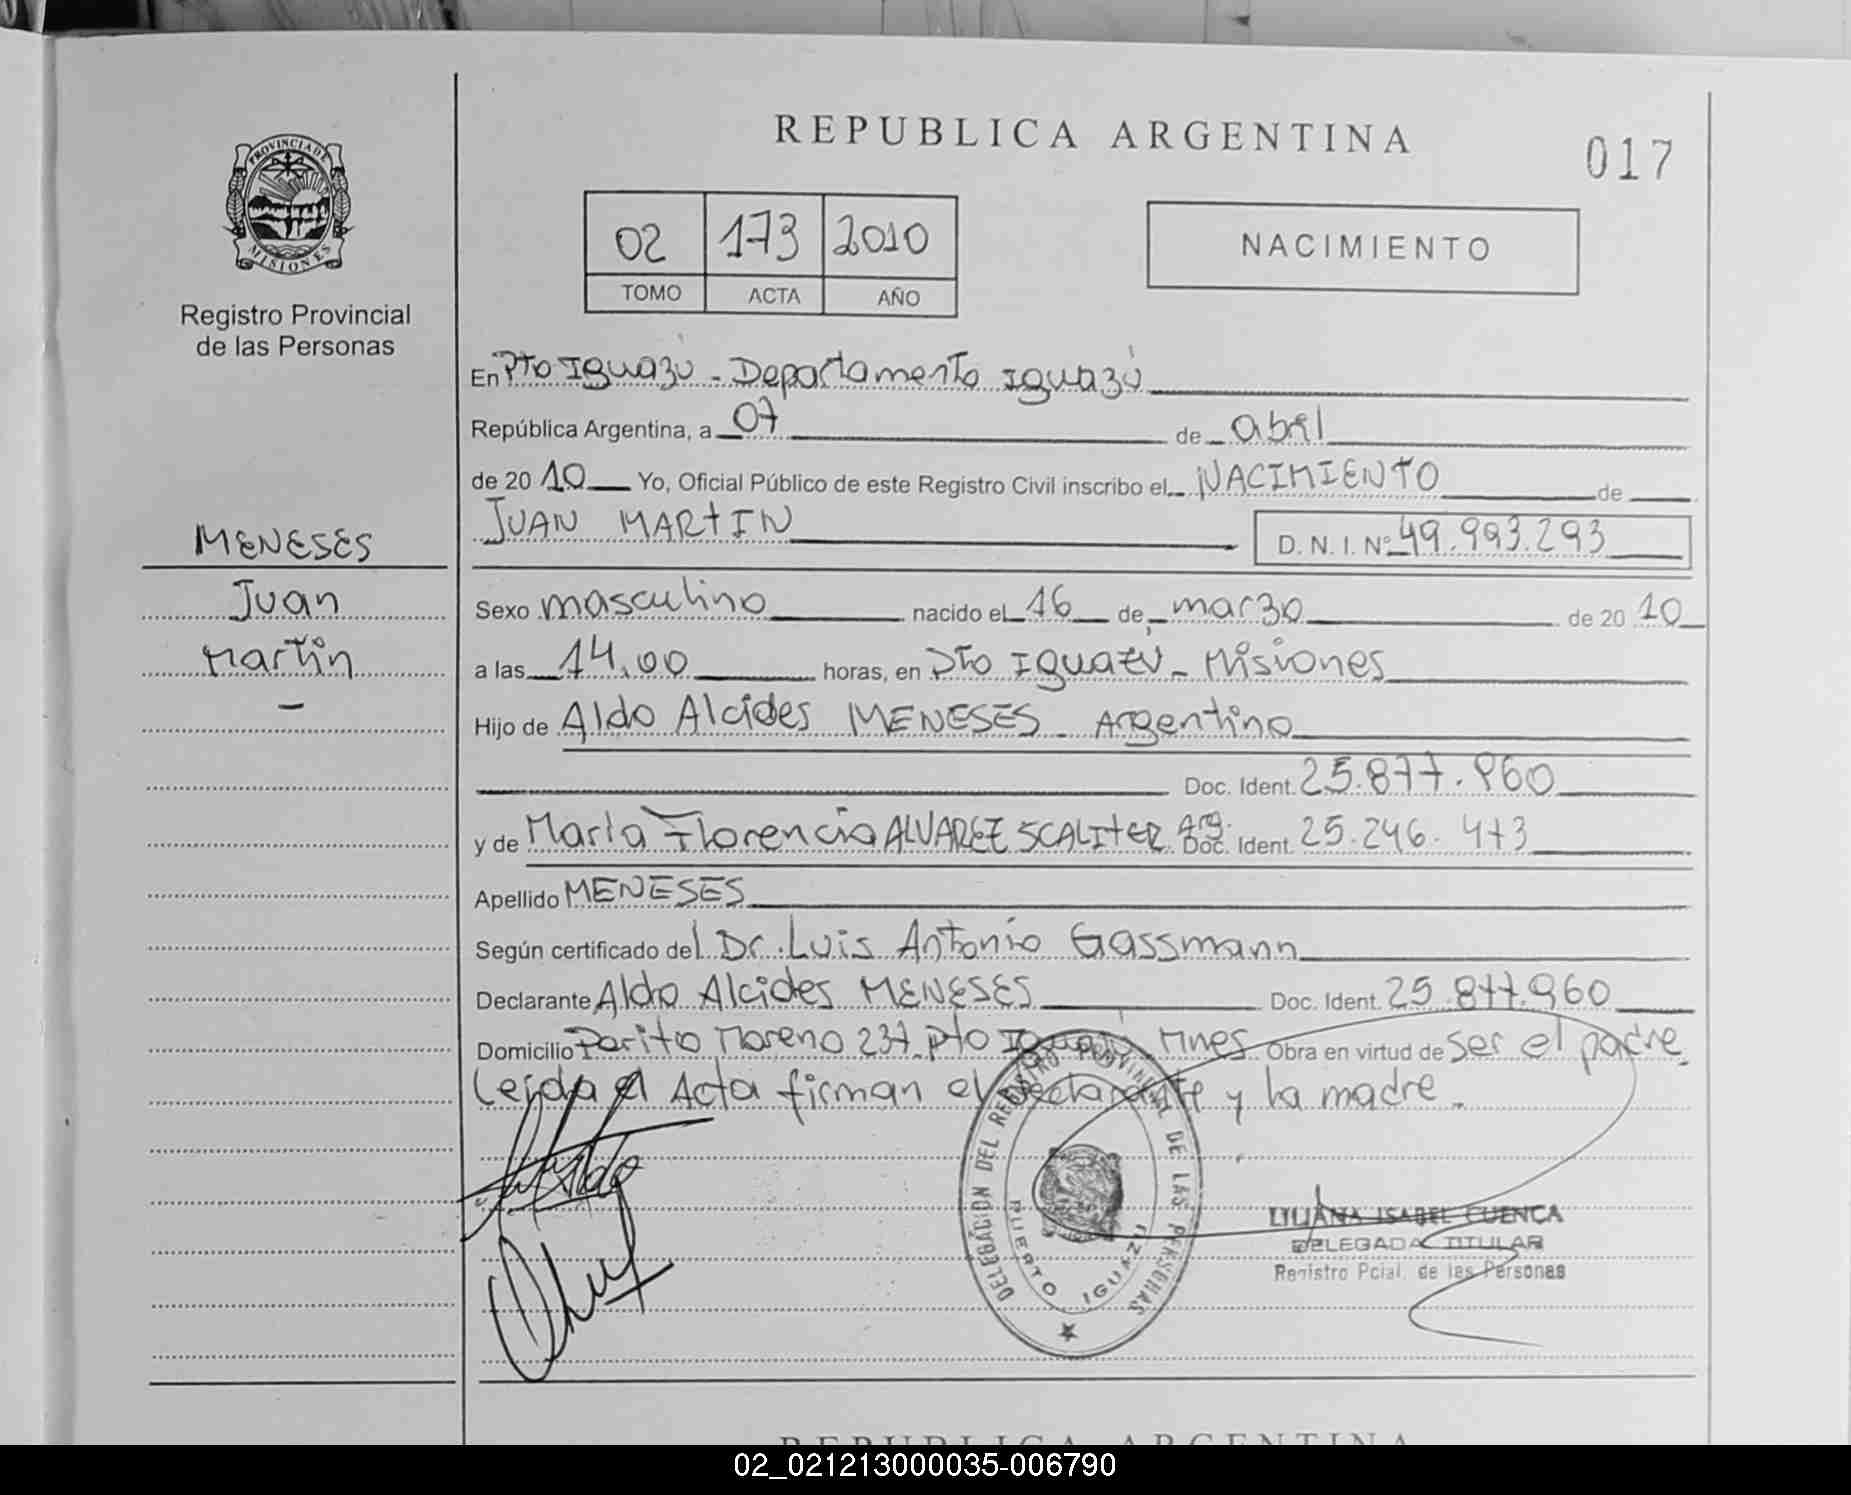 REPUBLICA ARGENTINA
017
PROVINCIA DE
MISIONES
Registro Provincial
de las Personas
02 173 2010
TOMO ACTA AÑO
NACIMIENTO
En Pto Iguazú - Departamento Iguazú
República Argentina, a 07 de abril
de 2010 Yo, Oficial Público de este Registro Civil inscribo el NACIMIENTO de
JUAN MARTIN D. N. I. Nº 49.993.293
MENESES
Juan
Martin
-
Sexo masculino nacido el 16 de marzo de 2010
a las 14,00 horas, en Pto Iguazú - Misiones
Hijo de Aldo Alcides MENESES - Argentino
Doc. Ident. 25.877.960
y de María Florencia ALVAREZ SCALITER Arg. Doc. Ident. 25.246.473
Apellido MENESES
Según certificado del Dr. Luis Antonio Gassmann
Declarante Aldo Alcides MENESES Doc. Ident. 25.877.960
Domicilio Perito Moreno 237 Pto Iguazú Mnes Obra en virtud de ser el padre.
Leída el Acta firman el declarante y la madre.
DELEGACION DEL REGISTRO PROVINCIAL DE LAS PERSONAS
PUERTO IGUAZU
LILIANA ISABEL CUENCA
DELEGADA TITULAR
Registro Pcial. de las Personas
REPUBLICA ARGENTINA
02_021213000035-006790